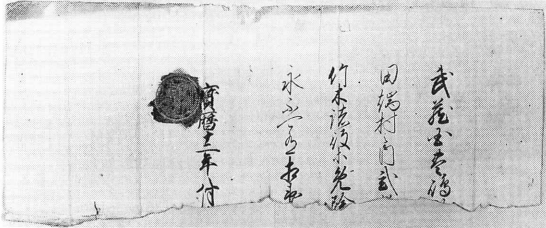 武蔵国豊嶋
田端村之内弐
竹木諸役等免除
永不可有相違
寳暦十二年付